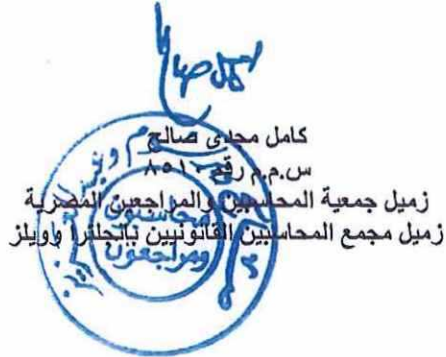 كامل مجدي صالح
س.م.م رقم ٨٥١٠
زميل جمعية المحاسبين والمراجعين المصرية
زميل مجمع المحاسبين القانونيين بإنجلترا وويلز
محاسبون
ومراجعون